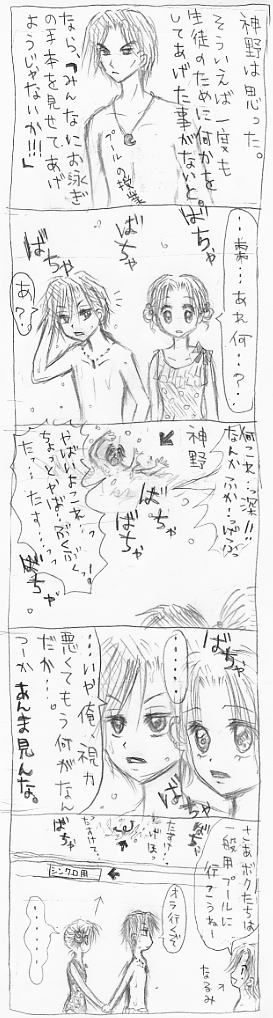 神野は思った。
そういえば一度も
生徒のために何かを
してあげた事がないと。
プールの授業
なら、「みんなにお泳ぎ
の手本を見せてあげ
ようじゃないか!!!」
ばちゃ
ばちゃ
…棗…あれ何…?
ばちゃ
あ?
何これ…深!!
なんかふか…っげぶっ
神野
ばちゃ
ばちゃ
やばいよこれ…
ちょっとやば…ぶくぶくっ!
た…たす…っ
ばちゃ
ばちゃ
……
…いや俺、視力
悪くてもう何がなん
だか…。
つーかあんま見んな。
ばちゃ
ばちゃ
さあボクたちは
一般用プールに
行こうねー
なるみ
ばちゃ
たすけて…
ばちゃ
シンクロ用
オラ行くぞ
……